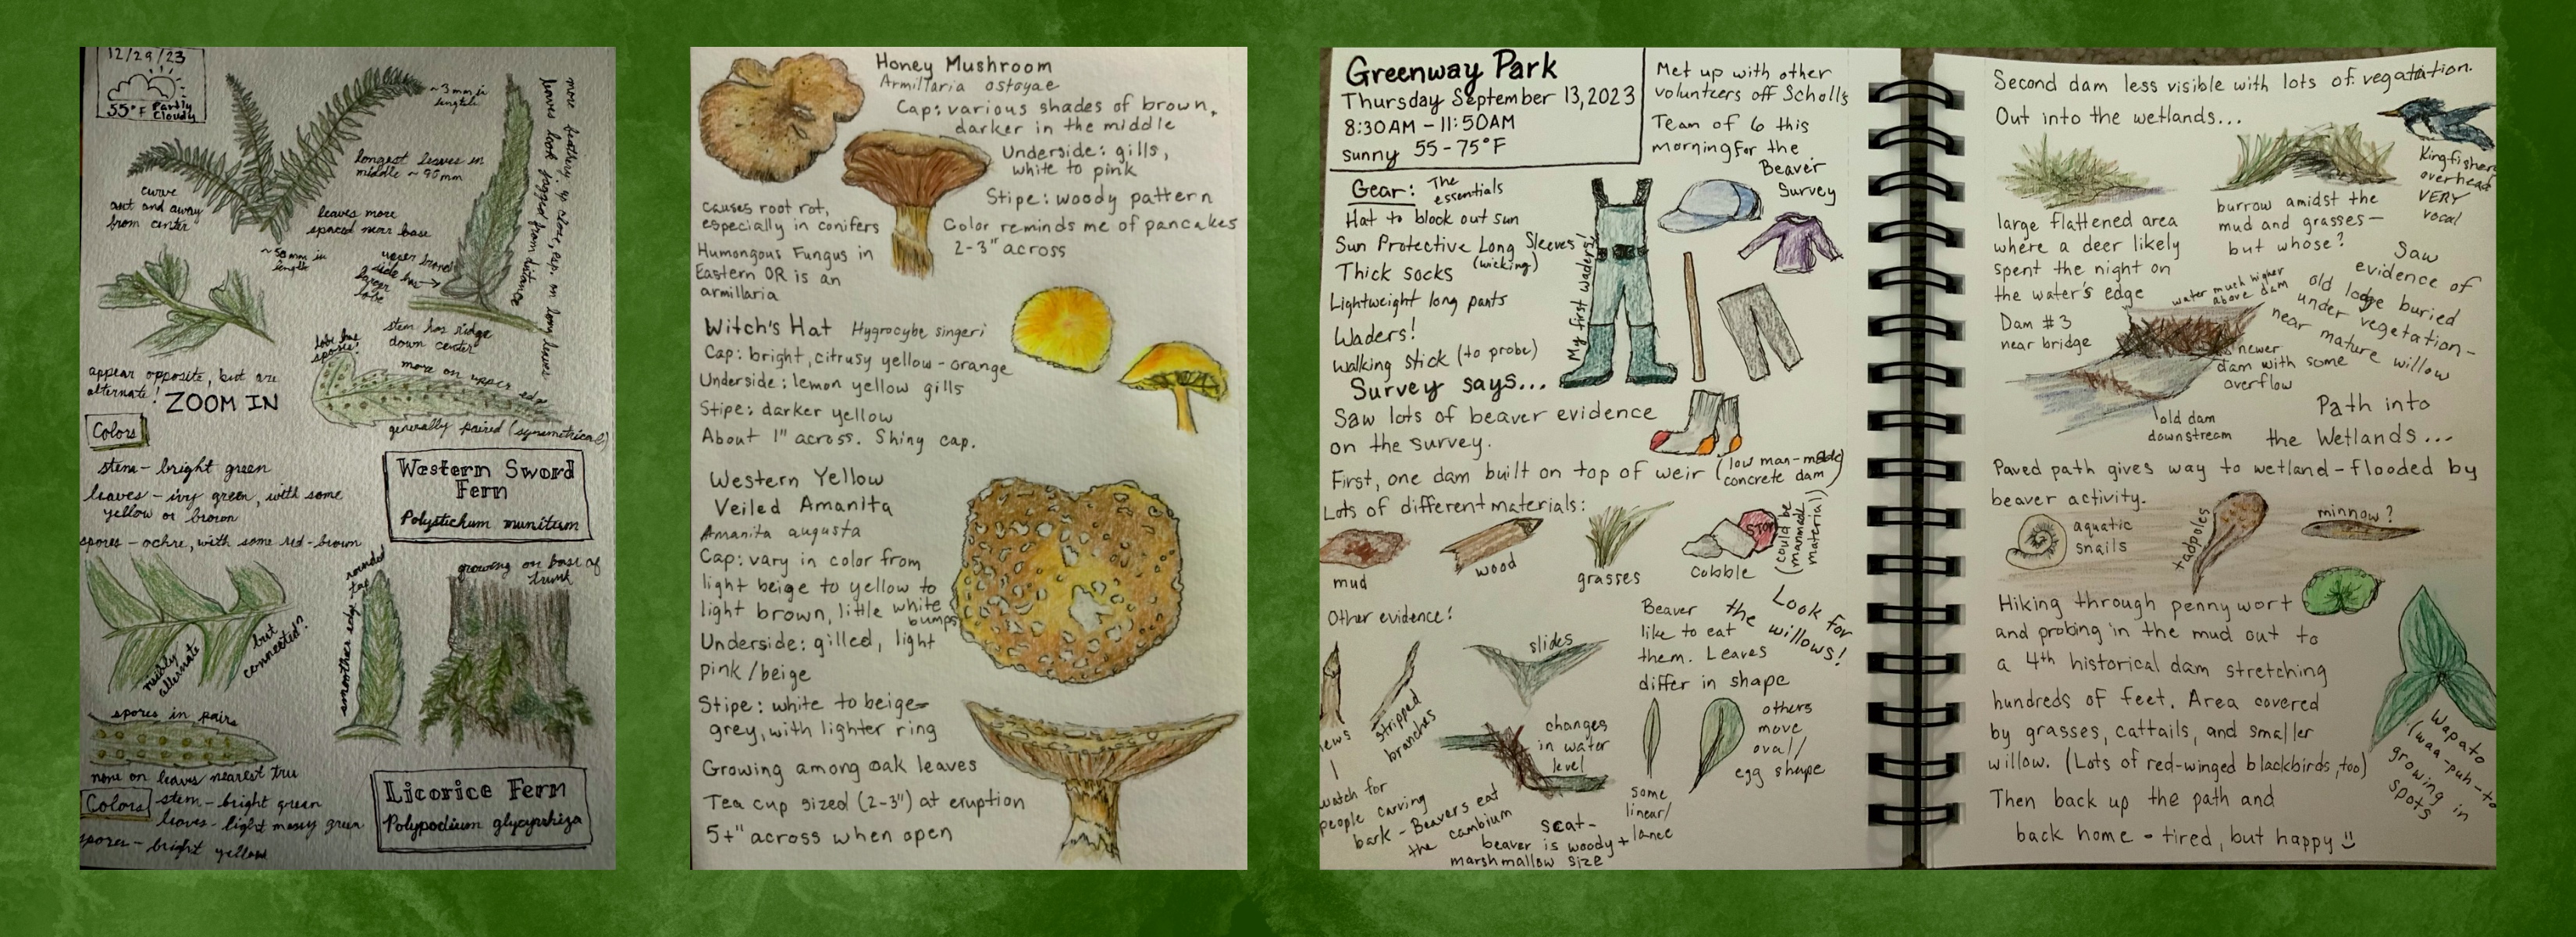 12/29/23
55°F Partly Cloudy
~3mm in length
longest leaves in middle ~90mm
curve out and away from center
leaves more spaced near base
~50mm in length
more feathery up close, esp. on long leaves
leaves look jagged from distance
upper frond side has larger lobe
stem has ridge down center
lobe has spores!
more on upper edge
generally paired (symmetrical)
appear opposite, but are alternate!
ZOOM IN
Colors
stem - bright green
leaves - ivy green, with some yellow or brown
spores - ochre, with some red-brown
Western Sword
Fern
Polystichum munitum
visibly alternate
but connected?
smoother edge
rounded
growing on base of trunk
spores in pairs
none on leaves nearest tree
Colors
stem - bright green
leaves - light mossy green
spores - bright yellow
Licorice Fern
Polypodium glycyrrhiza
Honey Mushroom
Armillaria ostoyae
Cap: various shades of brown,
darker in the middle
Underside: gills,
white to pink
Stipe: woody pattern
Color reminds me of pancakes
2-3" across
causes root rot,
especially in conifers
Humongous Fungus in
Eastern OR is an
armillaria
Witch's Hat Hygrocybe singeri
Cap: bright, citrusy yellow-orange
Underside: lemon yellow gills
Stipe: darker yellow
About 1" across. Shiny cap.
Western Yellow
Veiled Amanita
Amanita augusta
Cap: vary in color from
light beige to yellow to
light brown, little white
bumps
Underside: gilled, light
pink/beige
Stipe: white to beige-
grey, with lighter ring
Growing among oak leaves
Tea cup sized (2-3") at eruption
5+" across when open
Greenway Park
Thursday September 13, 2023
8:30AM - 11:50AM
sunny 55-75°F
Met up with other
volunteers off Scholls
Team of 6 this
morning for the
Beaver
Survey
Gear: The essentials
Hat to block out sun
Sun Protective Long Sleeves
(wicking)
Thick socks
Lightweight long pants
Waders!
Walking stick (to probe)
My first waders!
Survey says...
Saw lots of beaver evidence
on the survey.
First, one dam built on top of weir (low man-made
concrete dam)
Lots of different materials:
mud
wood
grasses
STOP
cobble
(could be
manmade
material)
Other evidence:
stripped
branches
slides
changes
in water
level
Beaver
like to eat
them. Leaves
differ in shape
Look for
the willows!
some
linear/
lance
others
move
oval/
egg shape
watch for
people carving
bark - Beavers eat
the cambium
scat-
beaver is woody +
marshmallow size
Second dam less visible with lots of vegatation.
Out into the wetlands...
Kingfisher
overhead
VERY
vocal
large flattened area
where a deer likely
spent the night on
the water's edge
burrow amidst the
mud and grasses-
but whose?
Saw
evidence of
old lodge buried
under vegetation-
near mature willow
water much higher
above dam
Dam #3
near bridge
newer
dam with some
overflow
old dam
downstream
Path into
the Wetlands...
Paved path gives way to wetland-flooded by
beaver activity.
aquatic
snails
tadpoles
minnow?
Hiking through pennywort
and probing in the mud out to
a 4th historical dam stretching
hundreds of feet. Area covered
by grasses, cattails, and smaller
willow. (Lots of red-winged blackbirds, too)
Then back up the path and
back home - tired, but happy
Wapato
(waa-puh-to
growing in
spots